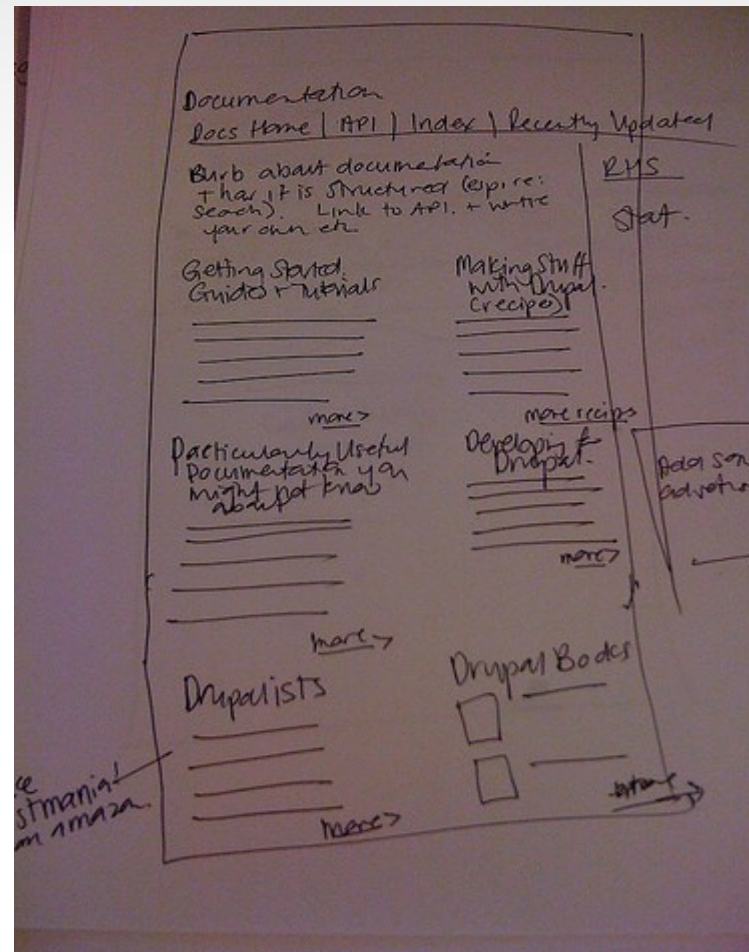 Documentation
Docs Home | API | Index | Recently Updated
Burb about documentation
+ how it is structured (esp. re:
search). Link to API. + write
your own etc
RHS
Stat.
Getting Started.
Guides + Tutorials
more >
Making Stuff
with Drupal.
(recipes)
more recipes
Particularly Useful
Documentation you
might not know
about
more >
Developing for
Drupal.
more >
Drupalists
more >
Drupal Books
Add
stmania!
on amazon.